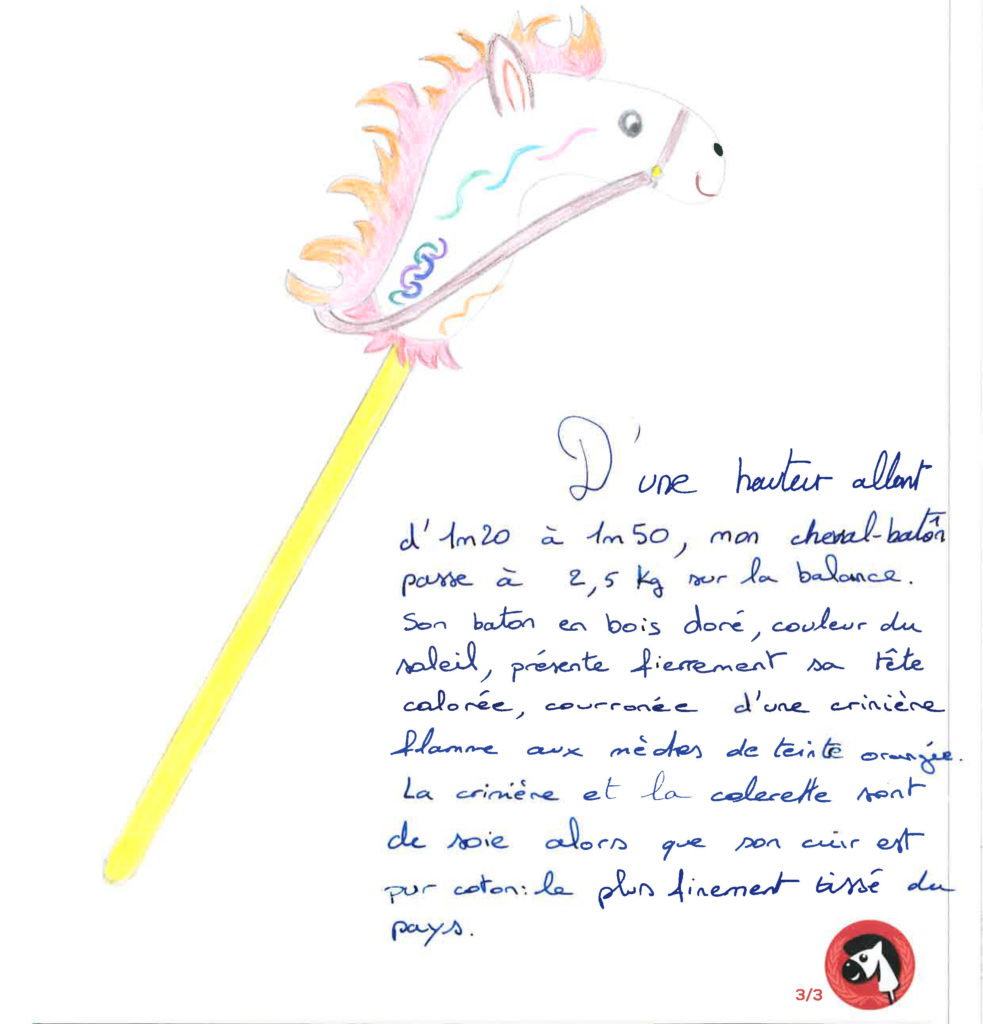 D'une hauteur allant
d'1m20 à 1m50, mon cheval-batôn
passe à 2,5 kg sur la balance.
Son baton en bois doré, couleur du
soleil, présente fierrement sa tête
colorée, courronée d'une crinière
flamme aux mèches de teinte orangée.
La crinière et la colerette sont
de soie alors que son cuir est
pur coton: le plus finement tissé du
pays.
3/3